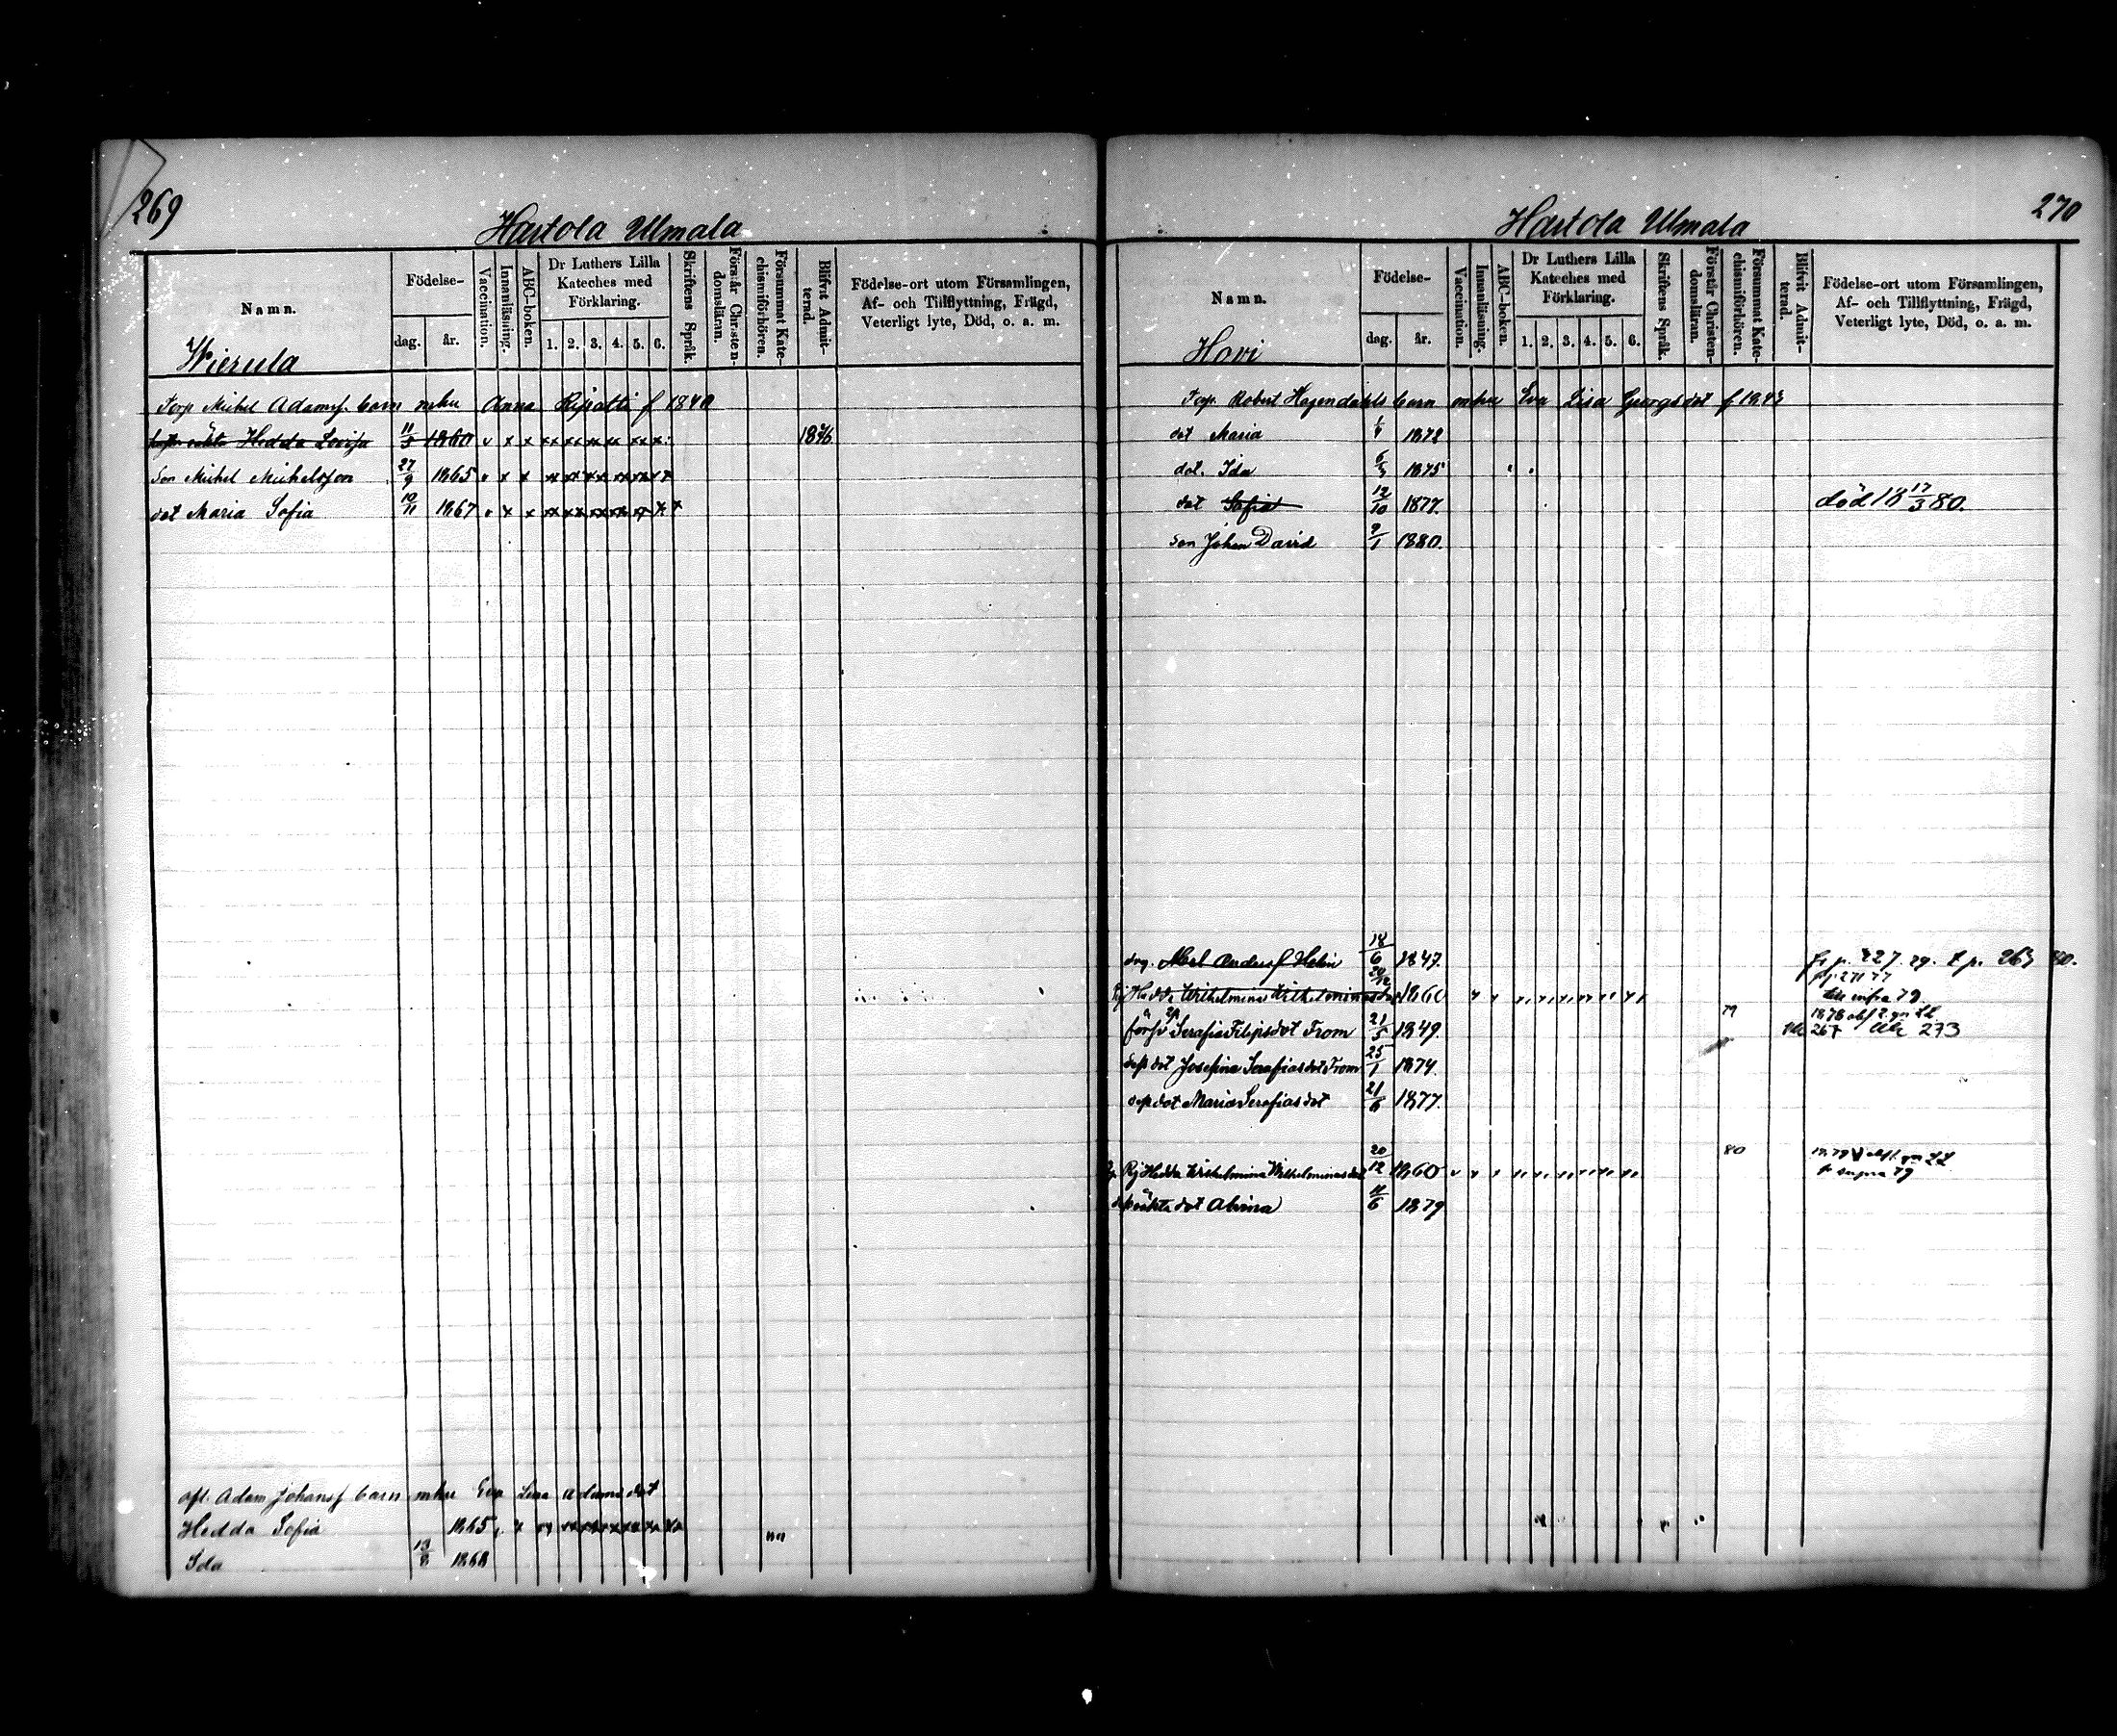 269
Hartola Ullmala
Namn.
Födelse-
dag.
år.
Vaccination.
Innanläsning.
ABC-boken.
Dr Luthers Lilla
Kateches med
Förklaring.
1. 2. 3. 4. 5. 6.
Skriftens Språk.
Förstår Christen-
domsläran.
Försummat Kate-
chismiförhören.
Blifvit Admit-
terad.
Födelse-ort utom Församlingen,
Af- och Tillflyttning, Frägd,
Veterligt lyte, Död, o. a. m.
Wierula
Torp Michel Adamsf. barn mhu Anna Ripatti f 1840
Hedda Lovisa 11/3 1860 v x x
Son Michel Michelsson 27/9 1865 v x x
dot Maria Sofia 10/11 1867 v x x
afl. Adam Johansf barn mhu Eva Lisa Adamsdot
Hedda Sofia 1865
Ida 1868
270
Hartola Ullmala
Namn.
Födelse-
dag.
år.
Vaccination.
Innanläsning.
ABC-boken.
Dr Luthers Lilla
Kateches med
Förklaring.
1. 2. 3. 4. 5. 6.
Skriftens Språk.
Förstår Christen-
domsläran.
Försummat Kate-
chismiförhören.
Blifvit Admit-
terad.
Födelse-ort utom Församlingen,
Af- och Tillflyttning, Frägd,
Veterligt lyte, Död, o. a. m.
Hovi
Torp. Robert Hagendahls barn mhu Eva Lisa Georgsdot f 1843
dot Maria 1872
dot. Ida 1875
dot Sofia 12/10 1877. död 18 17/3 80.
son Johan David 9/1 1880.
drg. Abel Andersf Helin 18/6 1847. fr p. 427. 79. t p. 263 80.
Pig Hedda Wilhelmina Wilhelminasdot 20/12 1860 infra 79.
Serafia Filipsdot From 21/5 1849. 79 267 273
dess dot Josefina Serafiasdot From 25/1 1874.
dess dot Maria Serafiasdot 21/6 1877.
Hedda Wilhelmina Wilhelminasdot 20/12 1860 80 supra 79
dess oäkta dot Alvina 11/6 1879